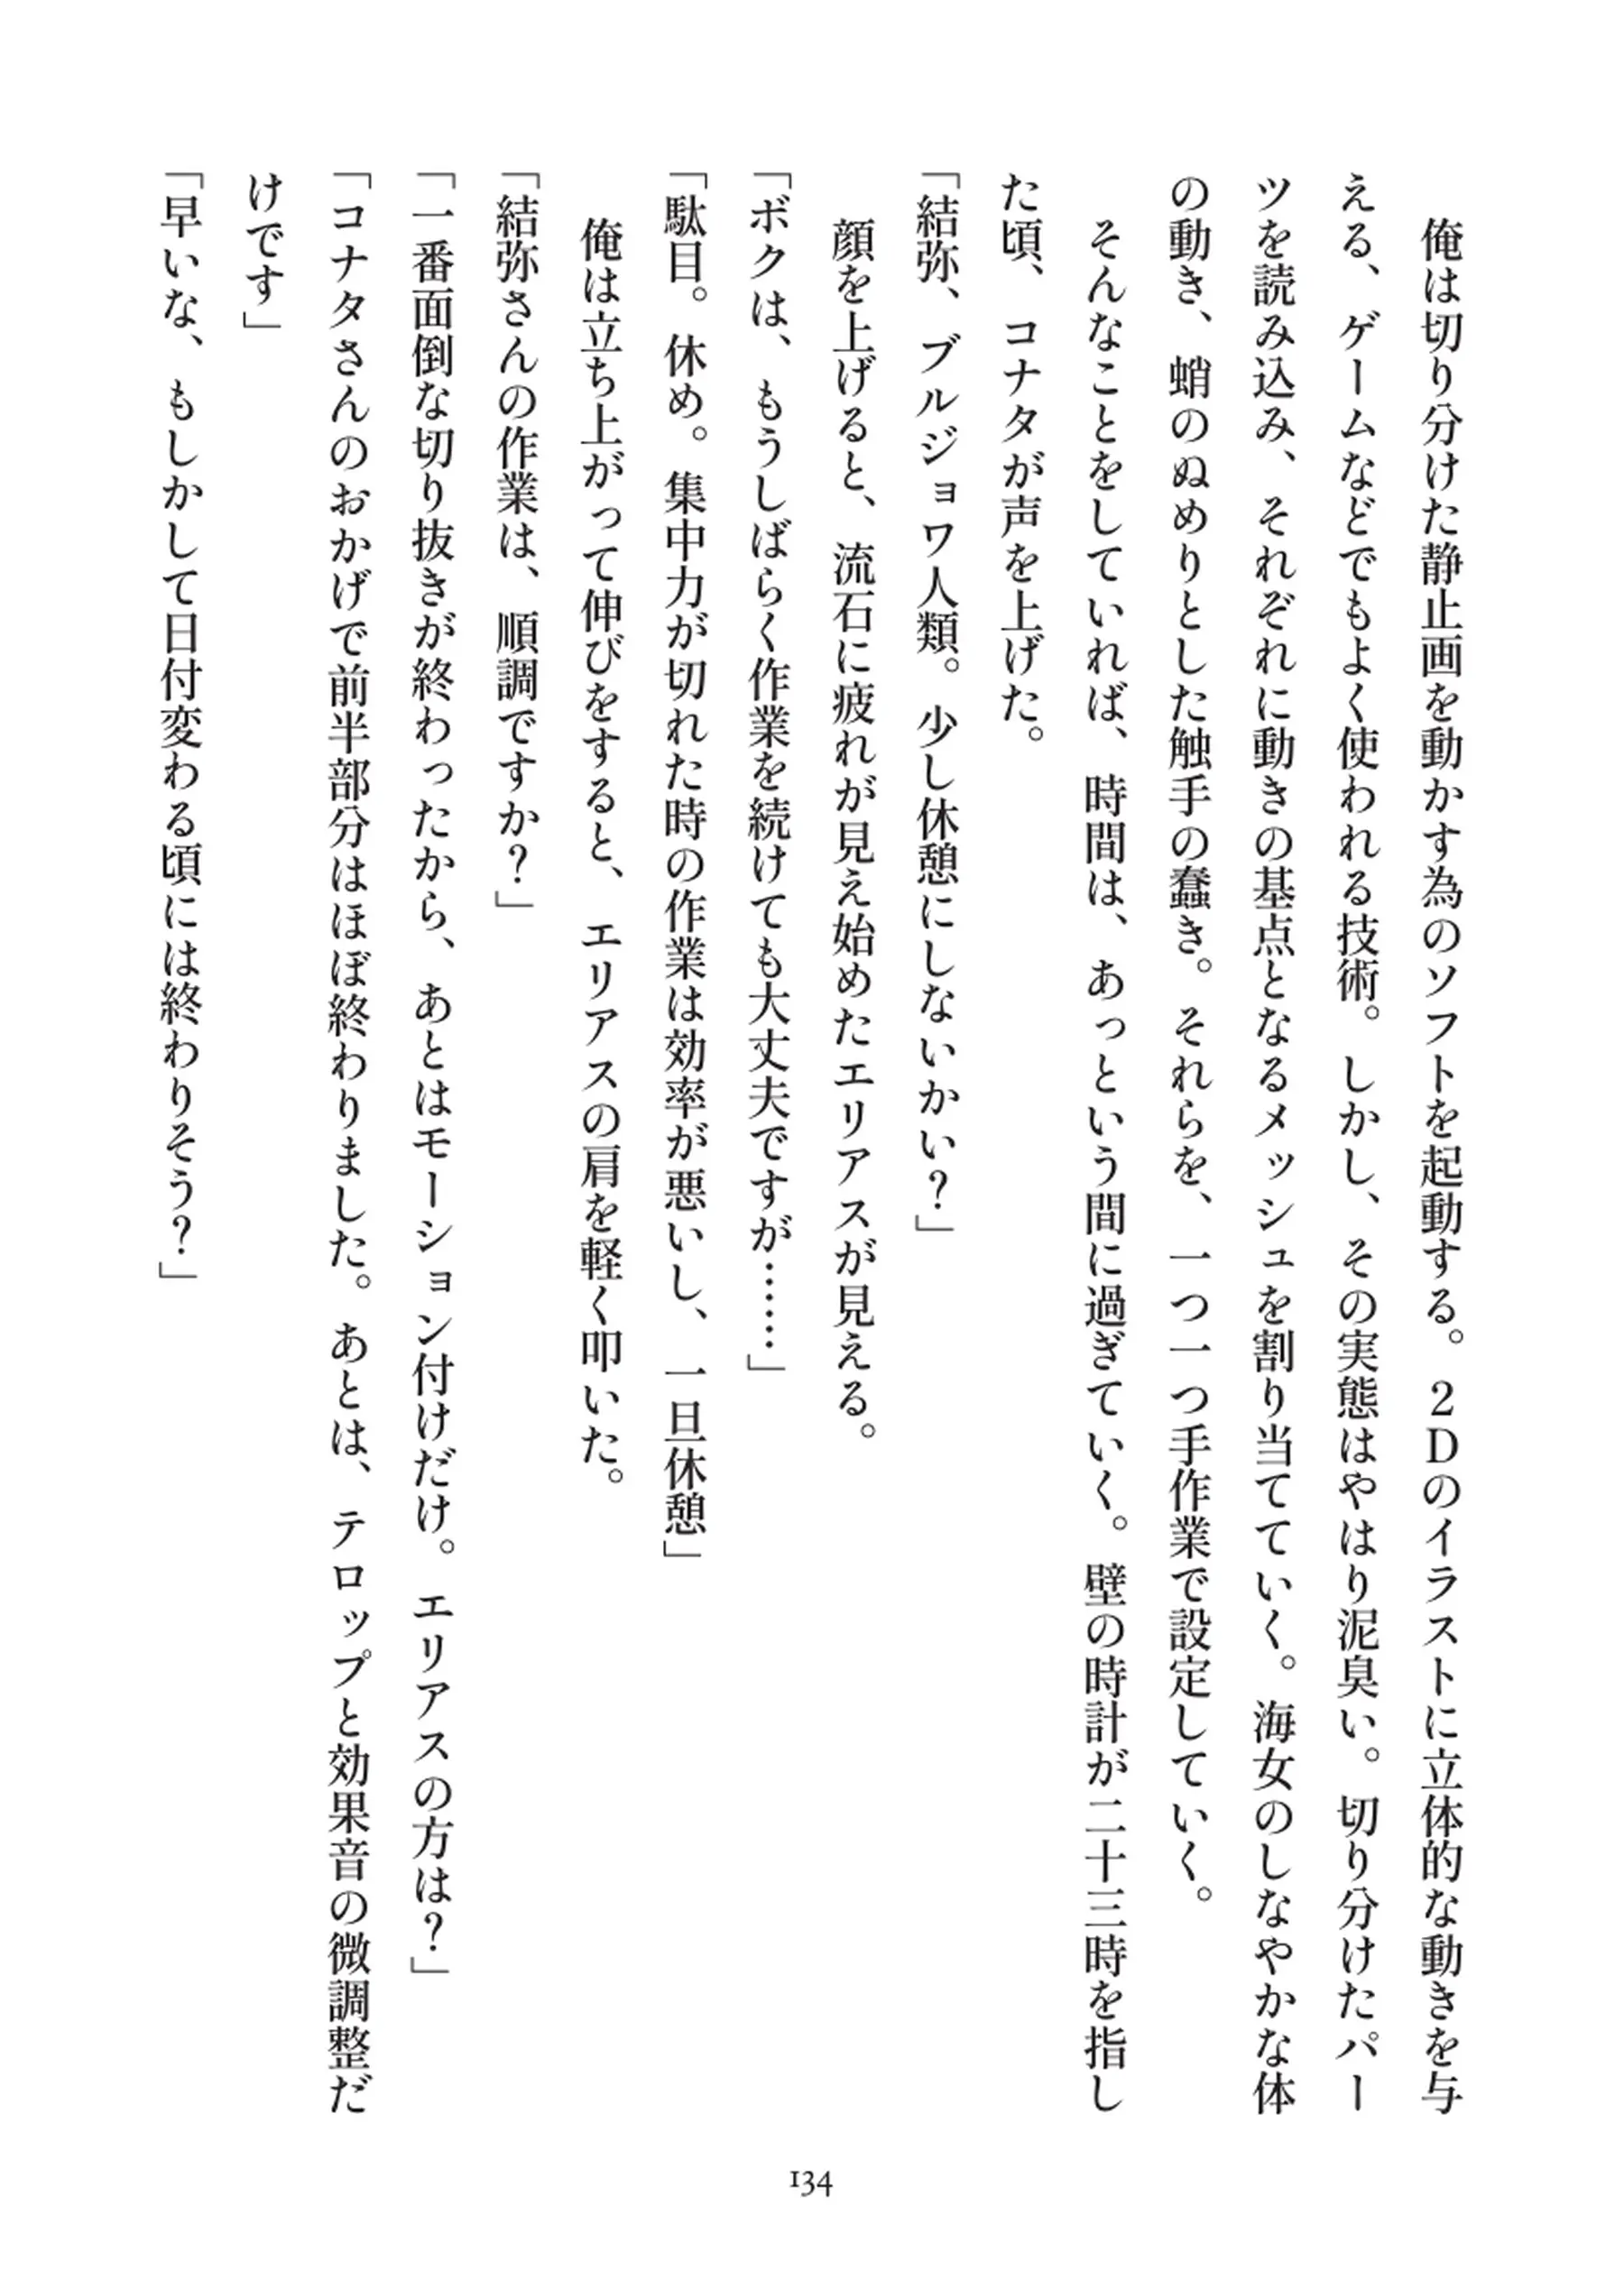 俺は切り分けた静止画を動かす為のソフトを起動する。２Ｄのイラストに立体的な動きを与
える、ゲームなどでもよく使われる技術。しかし、その実態はやはり泥臭い。切り分けたパー
ツを読み込み、それぞれに動きの基点となるメッシュを割り当てていく。海女のしなやかな体
の動き、蛸のぬめりとした触手の蠢き。それらを、一つ一つ手作業で設定していく。
　そんなことをしていれば、時間は、あっという間に過ぎていく。壁の時計が二十三時を指し
た頃、コナタが声を上げた。
「結弥、ブルジョワ人類。少し休憩にしないかい？」
　顔を上げると、流石に疲れが見え始めたエリアスが見える。
「ボクは、もうしばらく作業を続けても大丈夫ですが……」
「駄目。休め。集中力が切れた時の作業は効率が悪いし、一旦休憩」
　俺は立ち上がって伸びをすると、エリアスの肩を軽く叩いた。
「結弥さんの作業は、順調ですか？」
「一番面倒な切り抜きが終わったから、あとはモーション付けだけ。エリアスの方は？」
「コナタさんのおかげで前半部分はほぼ終わりました。あとは、テロップと効果音の微調整だ
けです」
「早いな、もしかして日付変わる頃には終わりそう？」
134